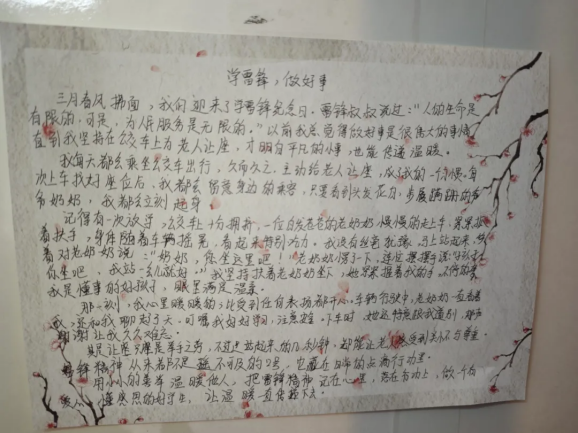 学雷锋，做好事
三月春风拂面，我们迎来了学雷锋纪念日。雷锋叔叔说过："人的生命是
有限的，可是，为人民服务是无限的。"以前我总觉得做好事是很伟大的事情
直到我坚持在公交车上为老人让座，才明白平凡的小事，也能传递温暖。
我每天都会乘坐公交车出行，久而久之，主动给老人让座，成了我的一个习惯。每
次上车找好座位后，我都会留意身边的乘客，只要看到头发花白，步履蹒跚的爷
爷奶奶，我都会立刻起身
记得有一次放学，公交车上十分拥挤，一位白发苍苍的老奶奶慢慢的走上车，紧紧抓
着扶手，身体随着车辆摇晃，看起来特别吃力。我没有丝毫犹豫，马上站起来，
着对老奶奶说："奶奶，您坐这里吧！"老奶奶愣了一下，连忙摆摆手说：
你坐吧，我站一会儿就好。"我坚持扶着老奶奶坐下，她紧紧握着我的手，不停的夸
我是懂事的好孩子，眼里满是温柔。
那一刻，我心里暖暖的，比受到任何表扬都开心。车辆行驶中，老奶奶一直看着
我，还和我聊起了天，叮嘱我好好学习，注意安全。下车时，她还特意跟我道别，
谢谢让我久久难忘。
其实让座只是举手之劳，不过是站起来的几分钟，却能让老人感受到关心与尊重。
雷锋精神从来都不是遥不可及的口号，它藏在日常的点滴行动里。
用小小的善举温暖他人，把雷锋精神记在心里，落在行动上，做一个有
爱心 懂感恩的好学生，让温暖一直传递下去。